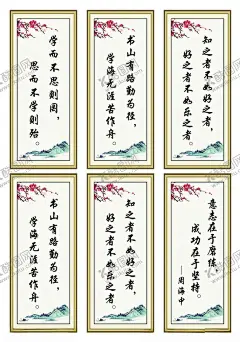 学而不思则罔，
思而不学则殆。
书山有路勤为径，
学海无涯苦作舟。
知之者不如好之者，
好之者不如乐之者。
书山有路勤为径，
学海无涯苦作舟。
知之者不如好之者，
好之者不如乐之者。
意志在于磨练，
成功在于坚持。
——周海中